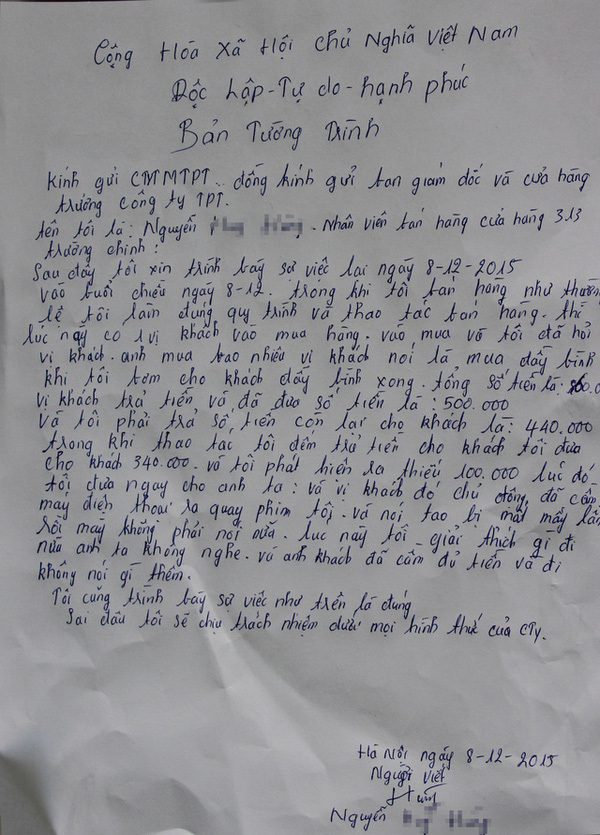 Cộng Hóa Xã Hội Chủ Nghĩa Việt Nam
Độc Lập - Tự do - hạnh phúc
Bản Tường Trình
Kính gửi CTTMTPT.. đồng kính gửi ban giám đốc và cửa hàng
trưởng công ty TPT.
tên tôi là: Nguyễn . Nhân viên bán hàng cửa hàng 313
trường chinh:
Sau đây tôi xin trình bày sự việc lại ngày 8-12-2015
vào buổi chiều ngày 8-12. trong khi tôi bán hàng như thường
lệ tôi làm đúng quy trình và thao tác bán hàng. thì
lúc này có 1 vị khách vào mua hàng. vào mua và tôi đã hỏi
vị khách. anh mua bao nhiêu vị khách nói là mua đầy bình
khi tôi bơm cho khách đầy bình xong. tổng số tiền là:
vị khách trả tiền và đã đưa số tiền là: 500.000
và tôi phải trả số tiền còn lại cho khách là: 440.000
trong khi thao tác tôi đếm trả tiền cho khách tôi đưa
cho khách 340.000. và tôi phát hiện ra thiếu 100.000 lúc đó
tôi đưa ngay cho anh ta: và vị khách đó chủ động đã cầm
máy điện thoại ra quay phim tôi. và nói tao bị mất mấy lần
rồi mày không phải nói nữa. lúc này tôi giải thích gì đi
nữa anh ta không nghe. và anh khách đã cầm đủ tiền và đi
không nói gì thêm.
Tôi cũng trình bày sự việc như trên là đúng
Sai đâu tôi sẽ chịu trách nhiệm dưới mọi hình thức của CTy.
Hà Nội ngày 8-12-2015
Người viết
Nguyễn